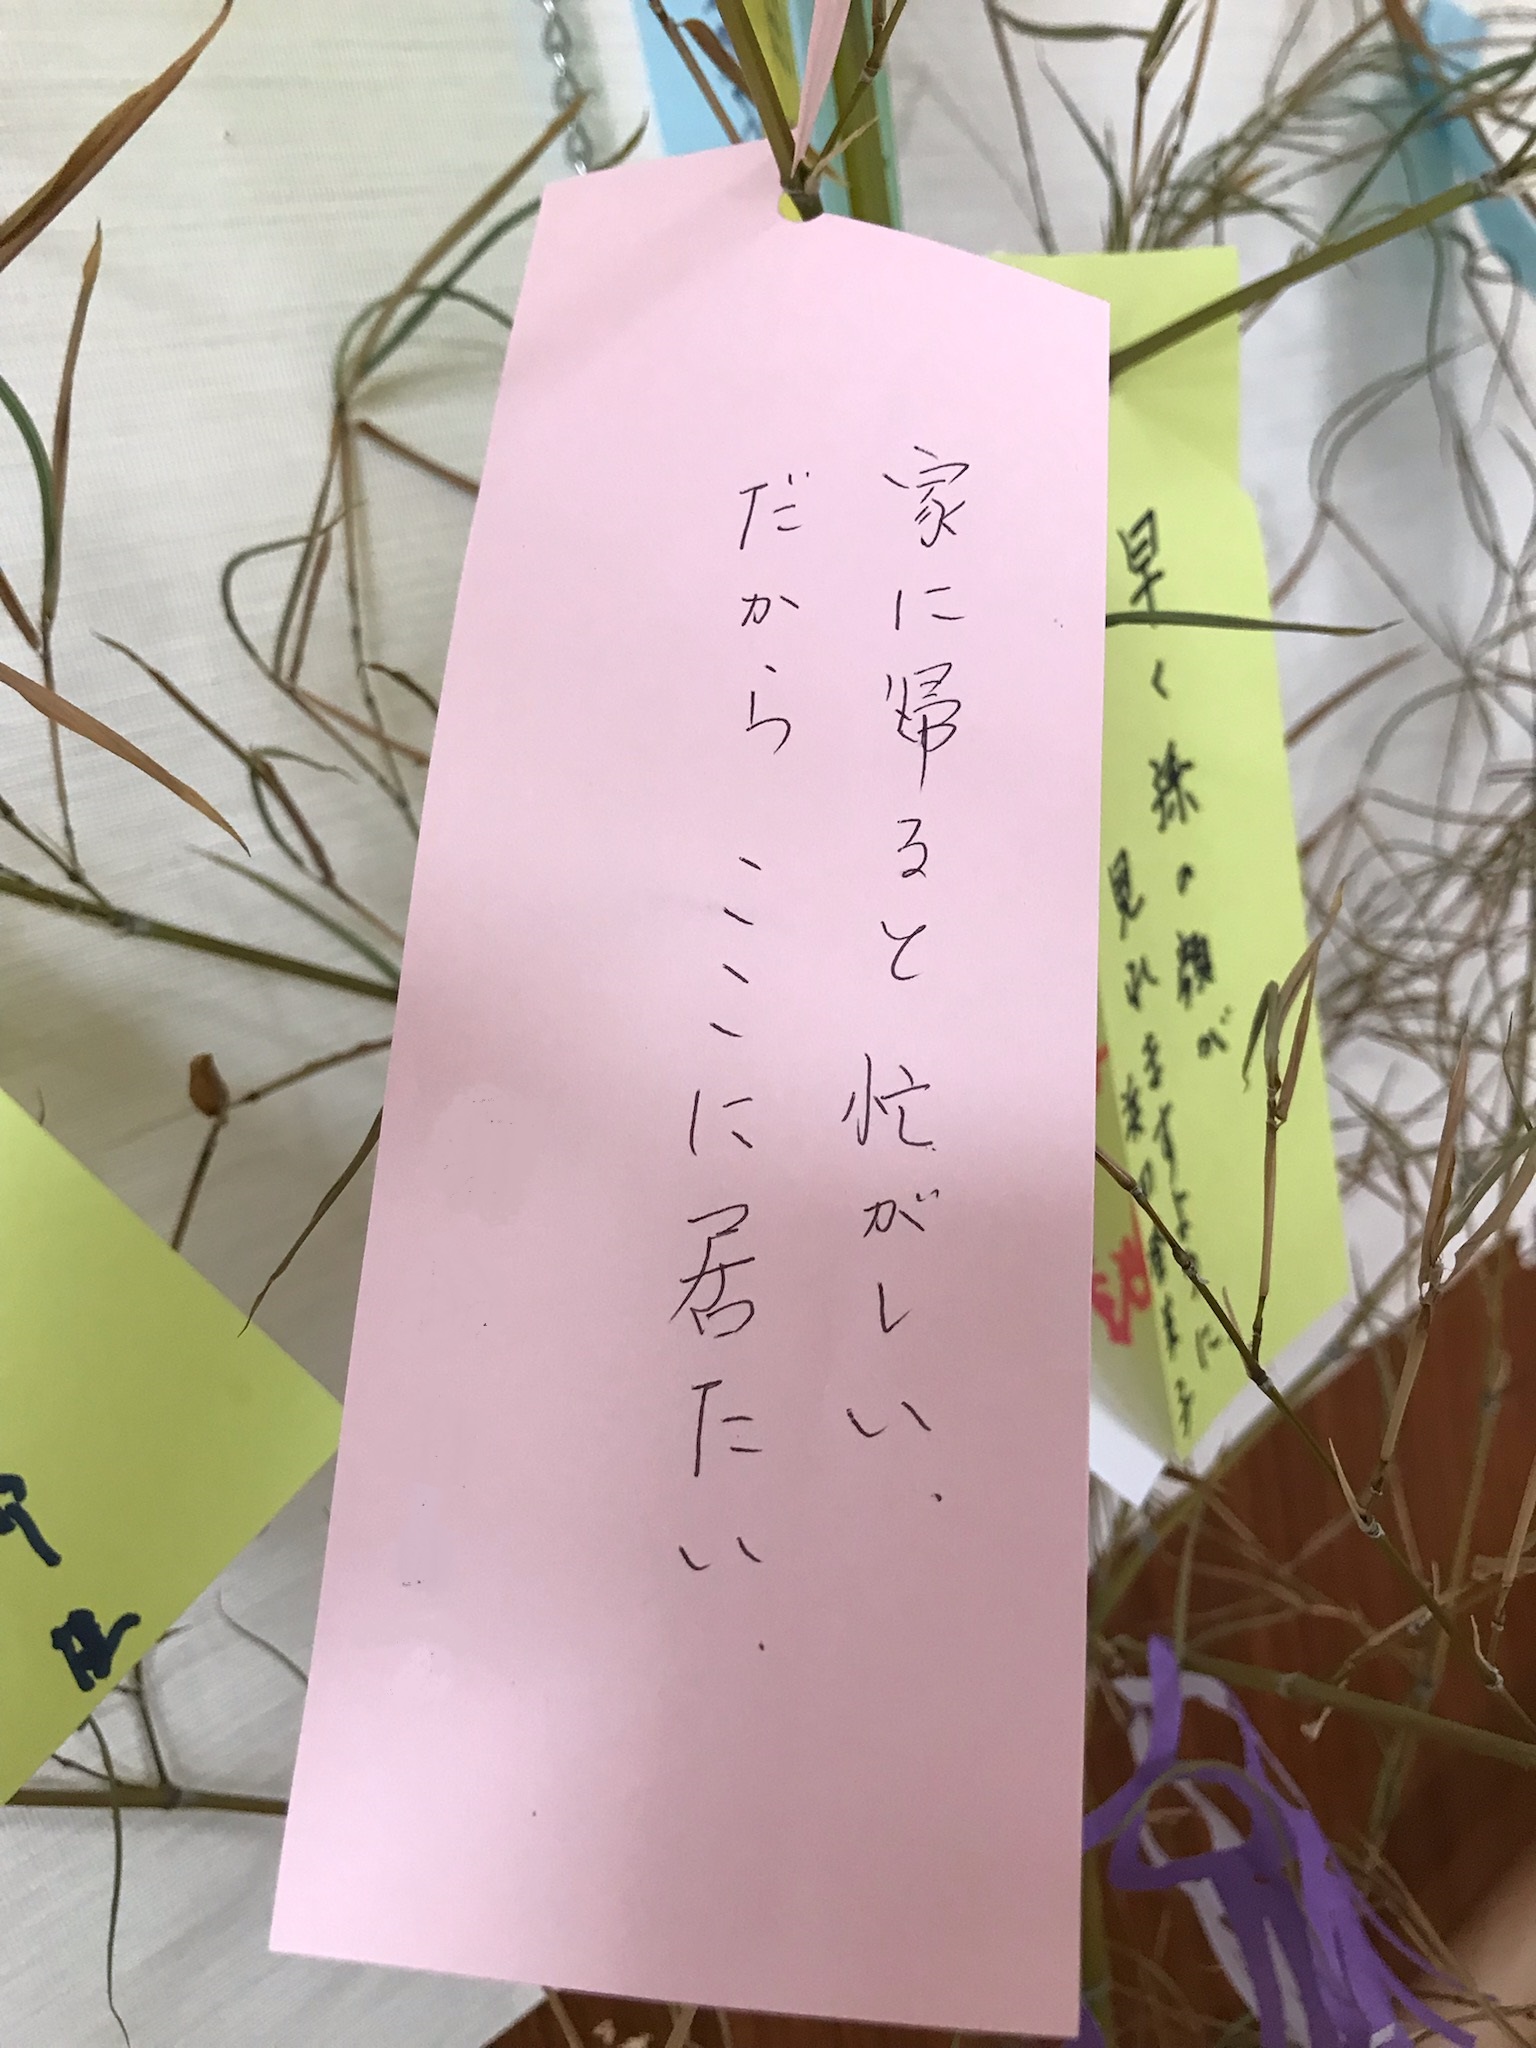 家に帰ると忙がしい.
だから ここに居たい.
早く孫の顔が
見れますように